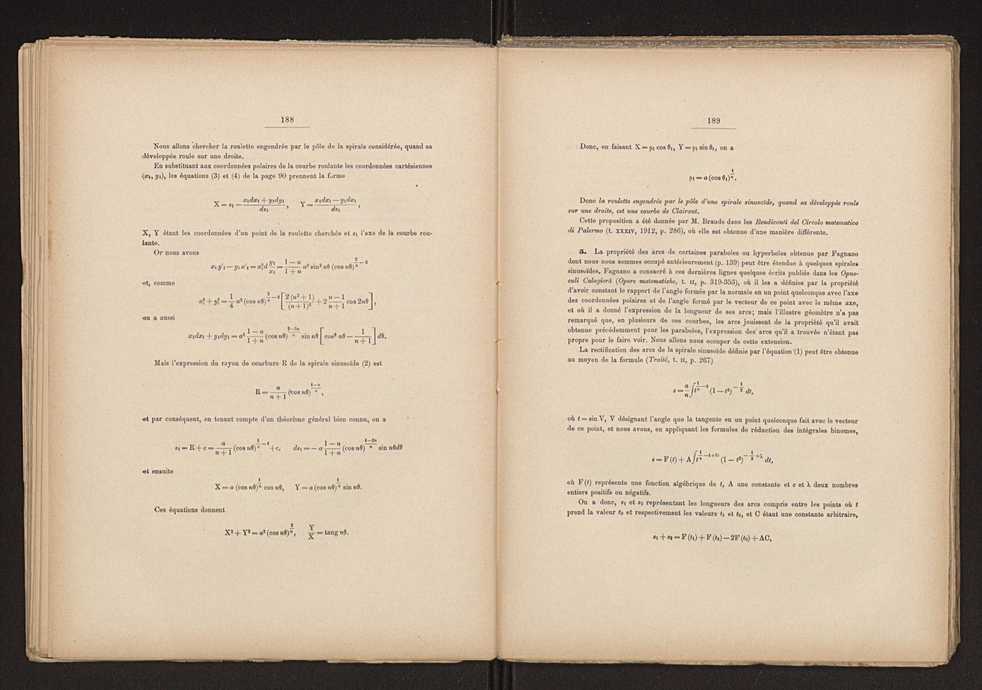 188
Nous allons chercher la roulette engendrée par le pôle de la spirale considérée, quand sa
développée roule sur une droite.
En substituant aux coordonnées polaires de la courbe roulante les coordonnées cartésiennes
(x₁, y₁), les équations (3) et (4) de la page 90 prennent la forme
X = s₁ — (x₁dx₁ + y₁dy₁)/ds₁, Y = (x₁dx₁ — y₁dx₁)/ds₁,
X, Y étant les coordonnées d'un point de la roulette cherchée et s₁ l'axe de la courbe rou-
lante.
Or nous avons
et, comme
on a aussi
Mais l'expression du rayon de courbure R de la spirale sinusoïde (2) est
R = a/(n + 1) (cos nθ)^((1−n)/n),
et par conséquent, en tenant compte d'un théorème général bien connu, on a
s₁ = R + c = a/(n + 1) (cos nθ)^(1/n − 1) + c, ds₁ = — a (1 − n)/(1 + n) (cos nθ)^((1−2n)/n) sin nθdθ
et ensuite
X = a (cos nθ)^(1/n) cos nθ, Y = a (cos nθ)^(1/n) sin nθ.
Ces équations donnent
X² + Y² = a² (cos nθ)^(2/n), Y/X = tang nθ.
189
Donc, en faisant X = ρ₁ cos θ₁, Y = ρ₁ sin θ₁, on a
ρ₁ = a (cos θ₁)^(1/n).
Donc la roulette engendrée par le pôle d'une spirale sinusoïde, quand sa développée roule
sur une droite, est une courbe de Clairaut.
Cette proposition a été donnée par M. Braude dans les Rendiconti del Circolo matematico
di Palermo (t. XXXIV, 1912, p. 286), où elle est obtenue d'une manière différente.
La propriété des arcs de certaines paraboles ou hyperboles obtenue par Fagnano
dont nous nous sommes occupé antérieurement (p. 139) peut être étendue à quelques spirales
sinusoïdes. Fagnano a consacré à ces dernières lignes quelques écrits publiés dans les Opus-
culi Calogierà (Opere matematiche, t. II, p. 319-353), où il les a définies par la propriété
d'avoir constant le rapport de l'angle formée par la normale en un point quelconque avec l'axe
des coordonnées polaires et de l'angle formé par le vecteur de ce point avec le même axe,
et où il a donné l'expression de la longueur de ses arcs; mais l'illustre géomètre n'a pas
remarqué que, en plusieurs de ces courbes, les arcs jouissent de la propriété qu'il avait
obtenue précédemment pour les paraboles, l'expression des arcs qu'il a trouvée n'étant pas
propre pour le faire voir. Nous allons nous occuper de cette extension.
La rectification des arcs de la spirale sinusoïde définie par l'équation (1) peut être obtenue
au moyen de la formule (Traité, t. II, p. 267)
s = a/n ∫ t^(1/n − 1) (1 — t²)^(− 1/2) dt,
où t = sin V, V désignant l'angle que la tangente en un point quelconque fait avec le vecteur
de ce point, et nous avons, en appliquant les formules de réduction des intégrales binomes,
où F (t) représente une fonction algébrique de t, A une constante et c et λ deux nombres
entiers positifs ou négatifs.
On a donc, s₁ et s₂ représentant les longueurs des arcs compris entre les points où t
prend la valeur t₀ et respectivement les valeurs t₁ et t₂, et C étant une constante arbitraire,
s₁ + s₂ = F (t₁) + F (t₂) — 2F (t₀) + AC,